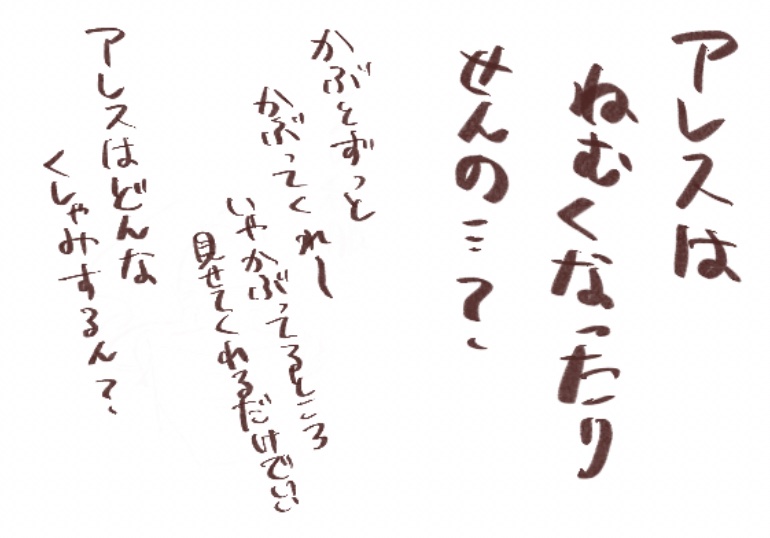 アレスは
ねむくなったり
せんの…?、
かぶとずっと
かぶってくれー
いやかぶってるところ
見せてくれるだけでいい
アレスはどんな
くしゃみするん?、